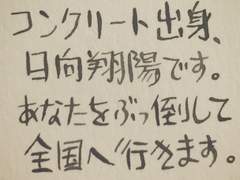 コンクリート出身、
日向翔陽です。
あなたをぶっ倒して
全国へ行きます。